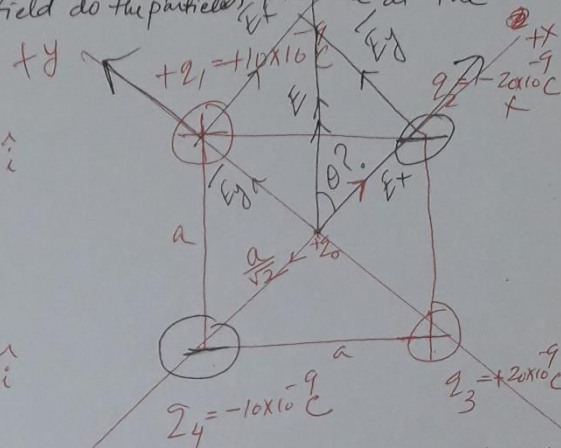 field do the particles
E+
+y
+q1 = +10x10^-9 C
Ey
+x
q2 = -20x10^-9 C
î
E
θ?
Ey
E+
a
a/√2
+q0
a
î
q3 = +20x10^-9 C
q4 = -10x10^-9 C